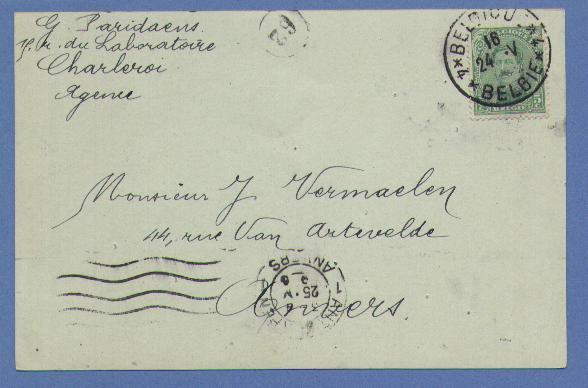 G. Paridaens
r. du Laboratoire
Charleroi
Agence
BELGIQU
16
24 V
4 * BELGIE *
5
Monsieur J. Vermaelen
44, rue Van Artevelde
Anvers
ANVERS
25 V